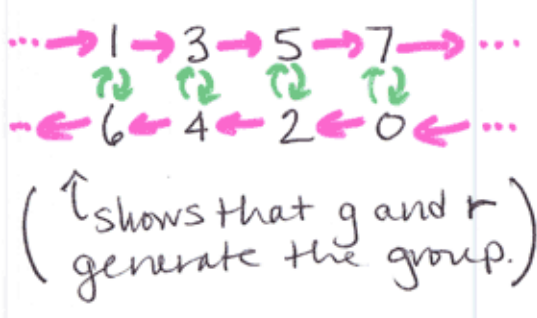 ... → 1 → 3 → 5 → 7 → ...
... ← 6 ← 4 ← 2 ← 0 ← ...
(↑ shows that g and r
generate the group.)